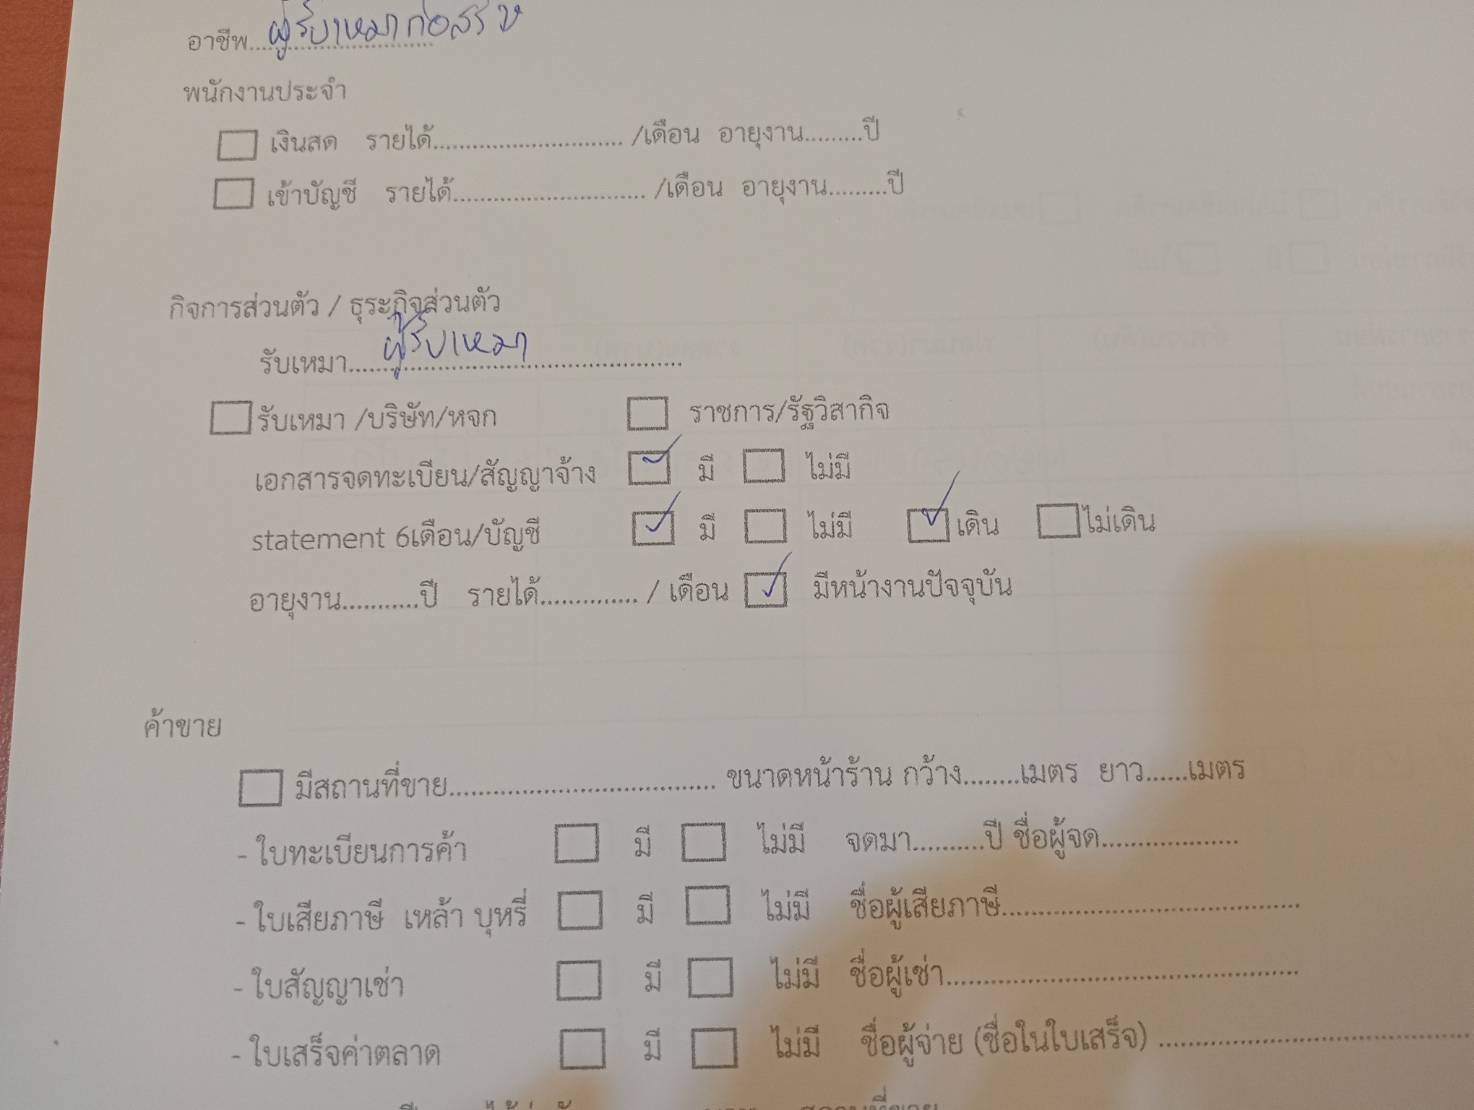 อาชีพ....ผู้รับเหมาก่อสร้าง
พนักงานประจำ
เงินสด รายได้............................../เดือน อายุงาน.........ปี
เข้าบัญชี รายได้............................../เดือน อายุงาน.........ปี
กิจการส่วนตัว / ธุระกิจส่วนตัว
รับเหมา....ผู้รับเหมา..........................
รับเหมา /บริษัท/หจก ราชการ/รัฐวิสากิจ
เอกสารจดทะเบียน/สัญญาจ้าง ✓ มี ไม่มี
statement 6เดือน/บัญชี ✓ มี ไม่มี ✓ เดิน ไม่เดิน
อายุงาน...........ปี รายได้............../ เดือน ✓ มีหน้างานปัจจุบัน
ค้าขาย
มีสถานที่ขาย...................................... ขนาดหน้าร้าน กว้าง........เมตร ยาว......เมตร
- ใบทะเบียนการค้า มี ไม่มี จดมา..........ปี ชื่อผู้จด....................
- ใบเสียภาษี เหล้า บุหรี่ มี ไม่มี ชื่อผู้เสียภาษี..........................................
- ใบสัญญาเช่า มี ไม่มี ชื่อผู้เช่า..................................................
- ใบเสร็จค่าตลาด มี ไม่มี ชื่อผู้จ่าย (ชื่อในใบเสร็จ) ............................................